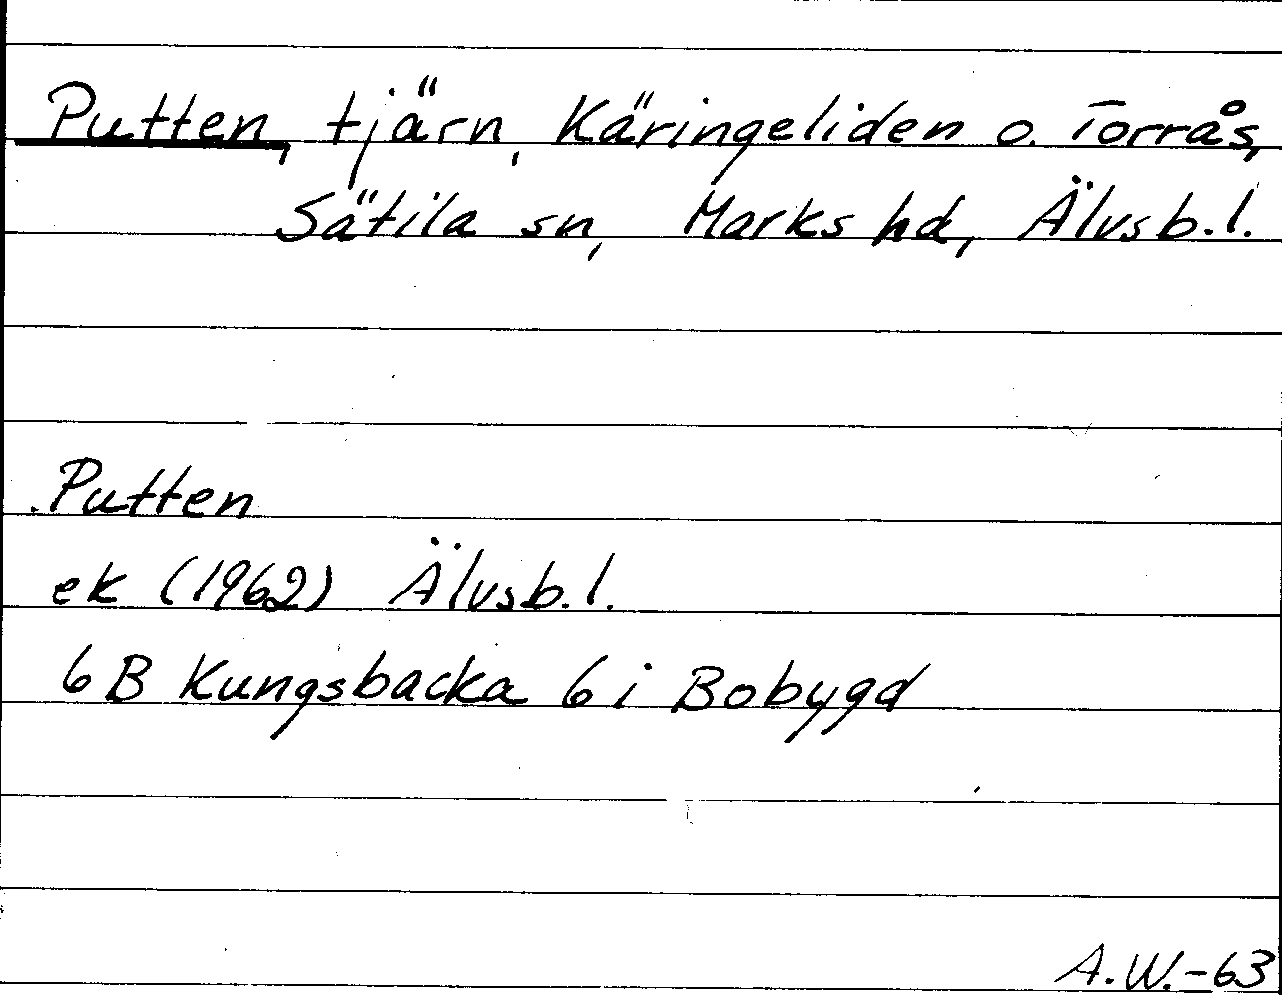 Putten, tjärn, Käringeliden o. Torrås,
Sätila sn, Marks hd, Älvsb.l.
Putten
ek (1962) Älvsb.l.
6B Kungsbacka 6i Bobygd
A.W.-63